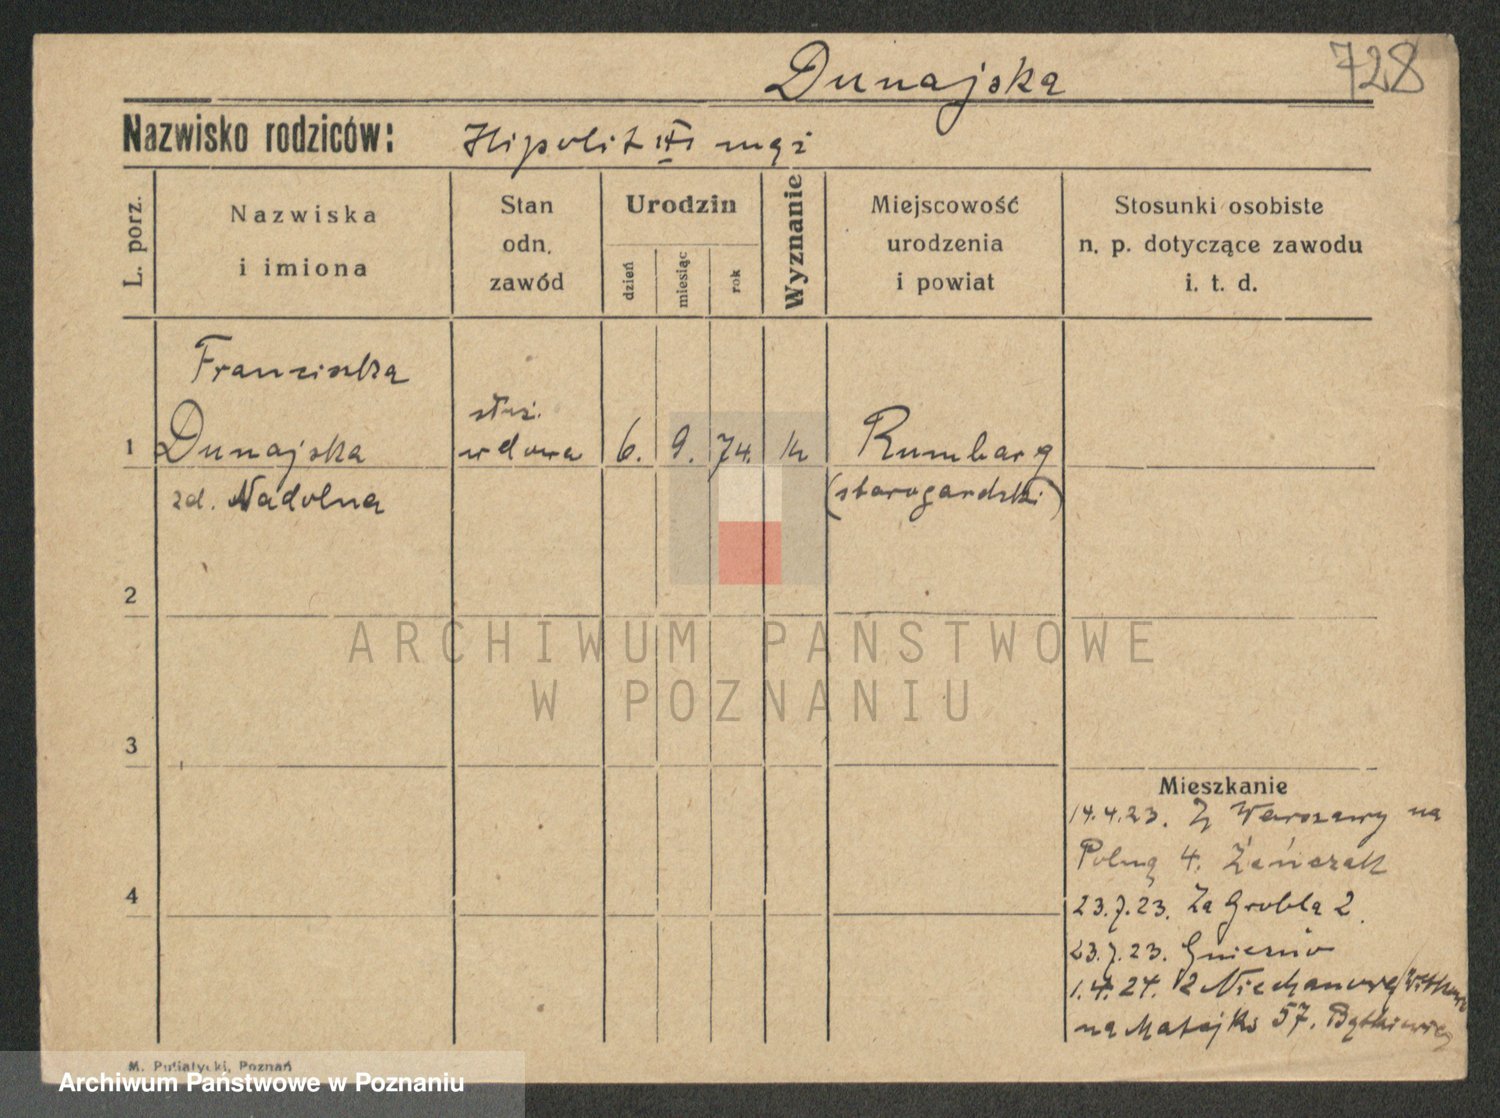 Dunajska
728
Nazwisko rodziców: Hipolit mąż
L. porz.
Nazwiska
i imiona
Stan
odn.
zawód
Urodzin
dzień
miesiąc
rok
Wyznanie
Miejscowość
urodzenia
i powiat
Stosunki osobiste
n. p. dotyczące zawodu
i. t. d.
Franciszka
służ.
1 Dunajska wdowa 6. 9. 74. k Rumbarg
zd. Nadolna (starogardzki)
2
3
4
Mieszkanie
14.4.23. Z Warszawy na
Polną 4. Zenczak
23.7.23. Za Groblą 2.
23.7.23. Gniezno
1.4.24. Z Niechanowa
na Matejki 57.
M. Putiatycki, Poznań
ARCHIWUM PAŃSTWOWE
W POZNANIU
Archiwum Państwowe w Poznaniu